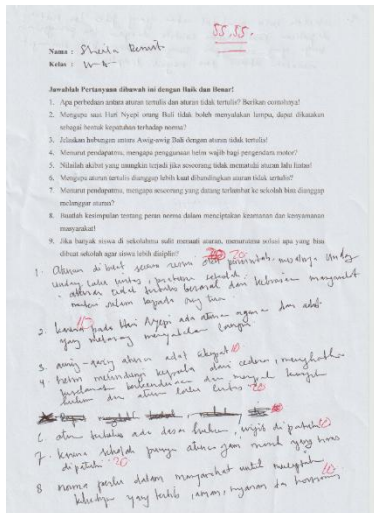 55,55.
Nama : Sheila
Kelas :
Jawablah Pertanyaan dibawah ini dengan Baik dan Benar!
1. Apa perbedaan antara aturan tertulis dan aturan tidak tertulis? Berikan contohnya!
2. Mengapa saat Hari Nyepi orang Bali tidak boleh menyalakan lampu, dapat dikatakan
sebagai bentuk kepatuhan terhadap norma?
3. Jelaskan hubungan antara Awig-awig Bali dengan aturan tidak tertulis!
4. Menurut pendapatmu, mengapa penggunaan helm wajib bagi pengendara motor?
5. Nilailah akibat yang mungkin terjadi jika seseorang tidak mematuhi aturan lalu lintas!
6. Mengapa aturan tertulis dianggap lebih kuat dibandingkan aturan tidak tertulis?
7. Menurut pendapatmu, mengapa seseorang yang datang terlambat ke sekolah bisa dianggap
melanggar aturan?
8. Buatlah kesimpulan tentang peran norma dalam menciptakan keamanan dan kenyamanan
masyarakat!
9. Jika banyak siswa di sekolahmu sulit menaati aturan, menurutmu solusi apa yang bisa
dibuat sekolah agar siswa lebih disiplin?
20
1. Aturan di buat secara resmi pemerintah. misalnya undang
undang lalu lintas, peraturan sekolah.
- aturan tidak tertulis berasal dari kebiasaan masyarakat
salam kepada orang tua.
2. karena pada Hari Nyepi ada aturan agama dan adat
yang melarang menyalakan lampu. 10
3. awig-awig aturan adat 10
4. helm melindungi kepala dari cedera,
keselamatan berkendaraan dan
hukum dan aturan lalu lintas 20
6 aturan tertulis ada dasar hukum, wajib di patuhi 10
7. karena sekolah punya aturan jam masuk yang harus
di patuhi 20
8 norma perlu dalam masyarakat untuk menciptakan
yang tertib, aman, nyaman dan harmonis 10